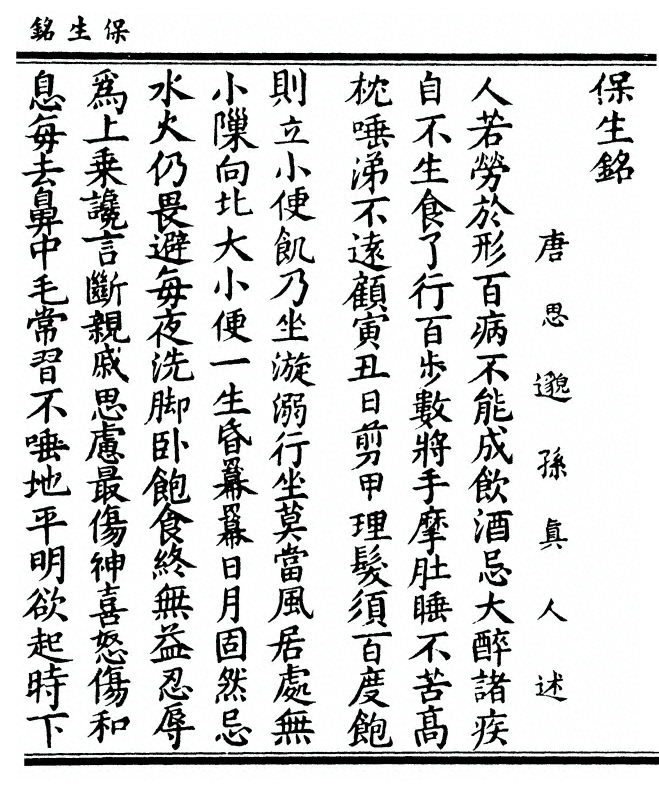 保生銘
保生銘
唐思邈孫眞人述
人若勞於形百病不能成飲酒忌大醉諸疾
自不生食了行百步數將手摩肚睡不苦高
枕唾涕不遠顧寅丑日剪甲理髮須百度飽
則立小便飢乃坐漩溺行坐莫當風居處無
小隟向北大小便一生昏羃羃日月固然忌
水火仍畏避每夜洗脚卧飽食終無益忍辱
爲上乘讒言斷親戚思慮最傷神喜怒傷和
息每去鼻中毛常習不唾地平明欲起時下